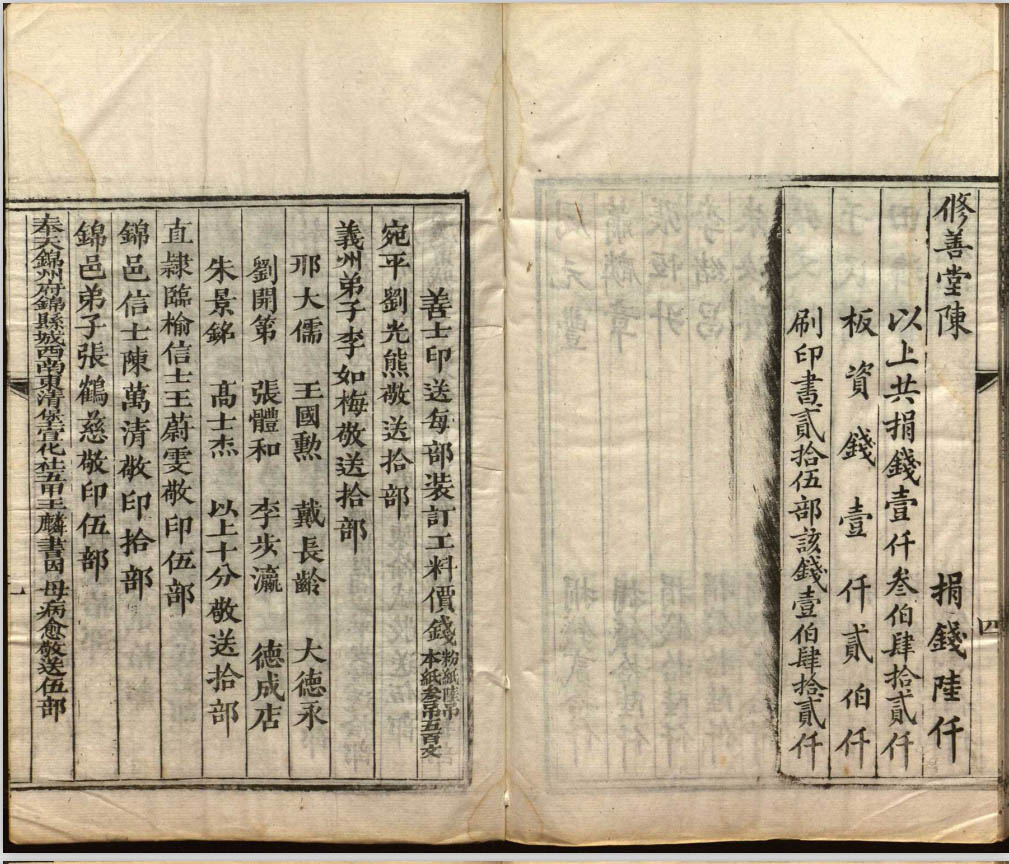 修善堂陳 捐錢陸仟
以上共捐錢壹仟叁伯肆拾貳仟
板資錢壹仟貳伯仟
刷印書貳拾伍部該錢壹伯肆拾貳仟
四
善士印送每部裝訂工料價錢 粉紙陸吊
本紙叁吊五百文
宛平劉光熊敬送拾部
義州弟子李如梅敬送拾部
邢大儒 王國勲 戴長齡 大德永
劉開第 張體和 李步瀛 德成店
朱景銘 高士杰 以上十分敬送拾部
直隸臨榆信士王蔚雯敬印伍部
錦邑信士陳萬清敬印拾部
錦邑弟子張鶴慈敬印伍部
奉天錦州府錦縣城西南東清堡宣化社五甲王麟書因 母病愈敬送伍部
一